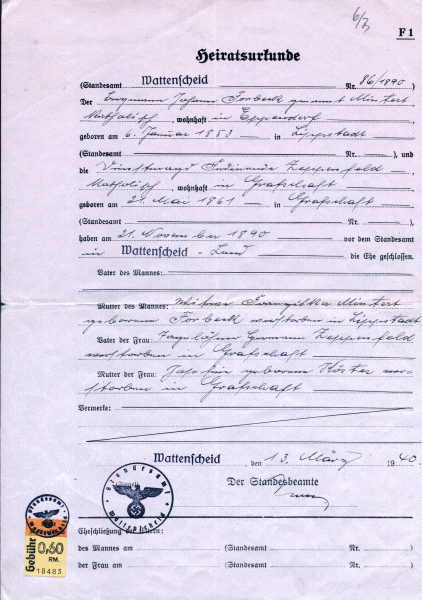 6/3
F 1
Heiratsurkunde
(Standesamt Wattenscheid Nr. 86/1890)
Der Bergmann Johann Torbeck genannt Mintert
katholisch, wohnhaft in Eppendorf
geboren am 6. Januar 1853 in Lippstadt
(Standesamt Nr. ), und
die Dienstmagd Ferdinanda Zeppenfeld
katholisch, wohnhaft in Grafschaft
geboren am 21. Mai 1861 in Grafschaft
(Standesamt Nr. )
haben am 21. November 1890 vor dem Standesamt
in Wattenscheid-Land die Ehe geschlossen.
Vater des Mannes:
Mutter des Mannes: Witwe Mintert
geborene Torbeck verstorben in Lippstadt
Vater der Frau: Tagelöhner Zeppenfeld
verstorben in Grafschaft
Mutter der Frau: geborene Köster ver-
storben in Grafschaft
Vermerke:
Wattenscheid, den 13. März 1940
(Siegel)
Der Standesbeamte
Standesamt
Wattenscheid
Standesamt
Wattenscheid
Gebühr
0,60
RM.
18483
Eheschließung der Eltern:
des Mannes am (Standesamt Nr. )
der Frau am (Standesamt Nr. )